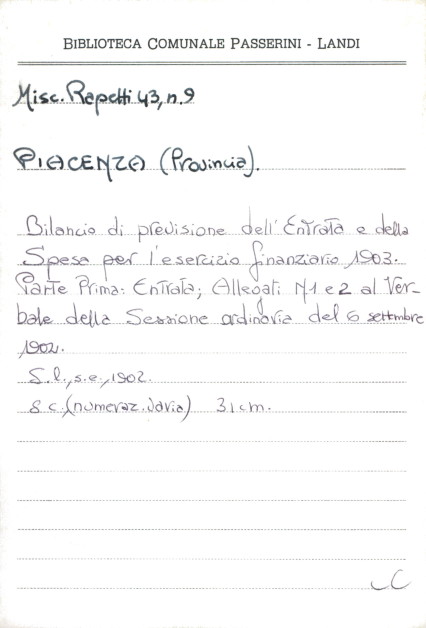 BIBLIOTECA COMUNALE PASSERINI - LANDI
Misc. Rapetti 43, n. 9
PIACENZA (Provincia).
Bilancio di previsione dell'Entrata e della
Spesa per l'esercizio finanziario 1903.
Parte Prima: Entrata; Allegati N 1 e 2 al Ver-
bale della Sessione ordinaria del 6 settembre
1902.
S.l., s.e., 1902.
8 c. (numeraz. varia) 31 cm.